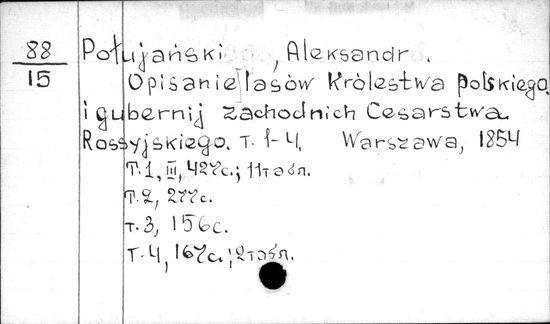 88
15
Połujański, Aleksandr.
Opisanie lasów Królestwa polskiego
i gubernij zachodnich Cesarstwa
Rossyjskiego. т. 1-4. Warszawa, 1854
Т.1, III, 427с.; 11табл.
Т.2, 277с.
т.3, 156с.
Т.4, 167с.; 2табл.